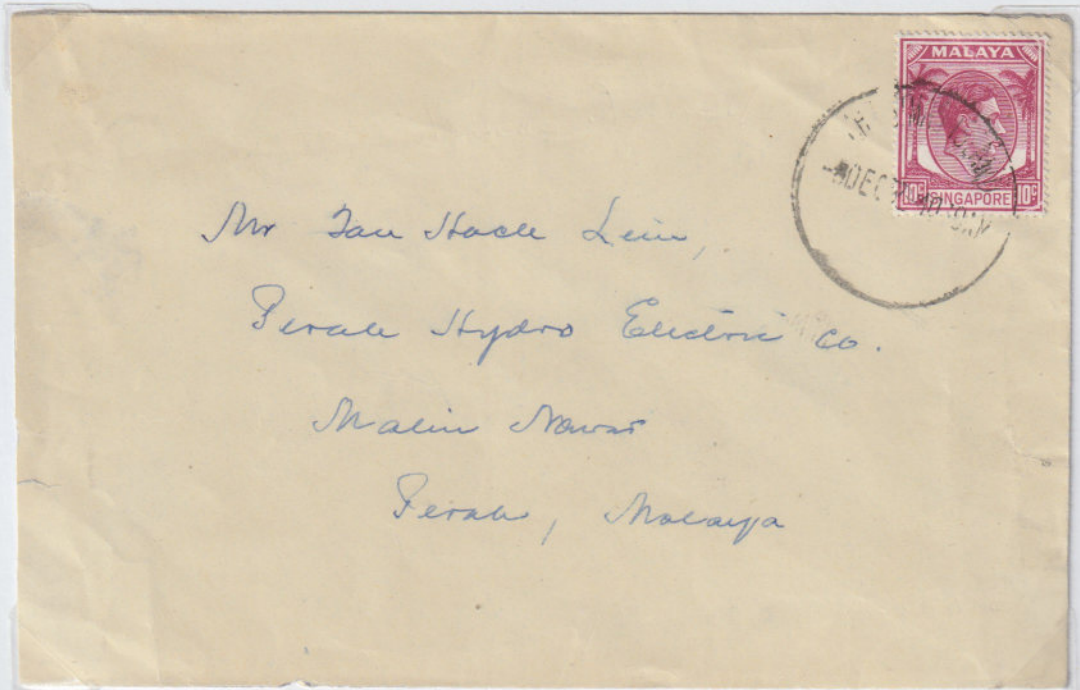 MALAYA
10c SINGAPORE 10c
DEC
Mr Tan Hock Lim,
Perak Hydro Electric Co.
Malim Nawar
Perak, Malaya